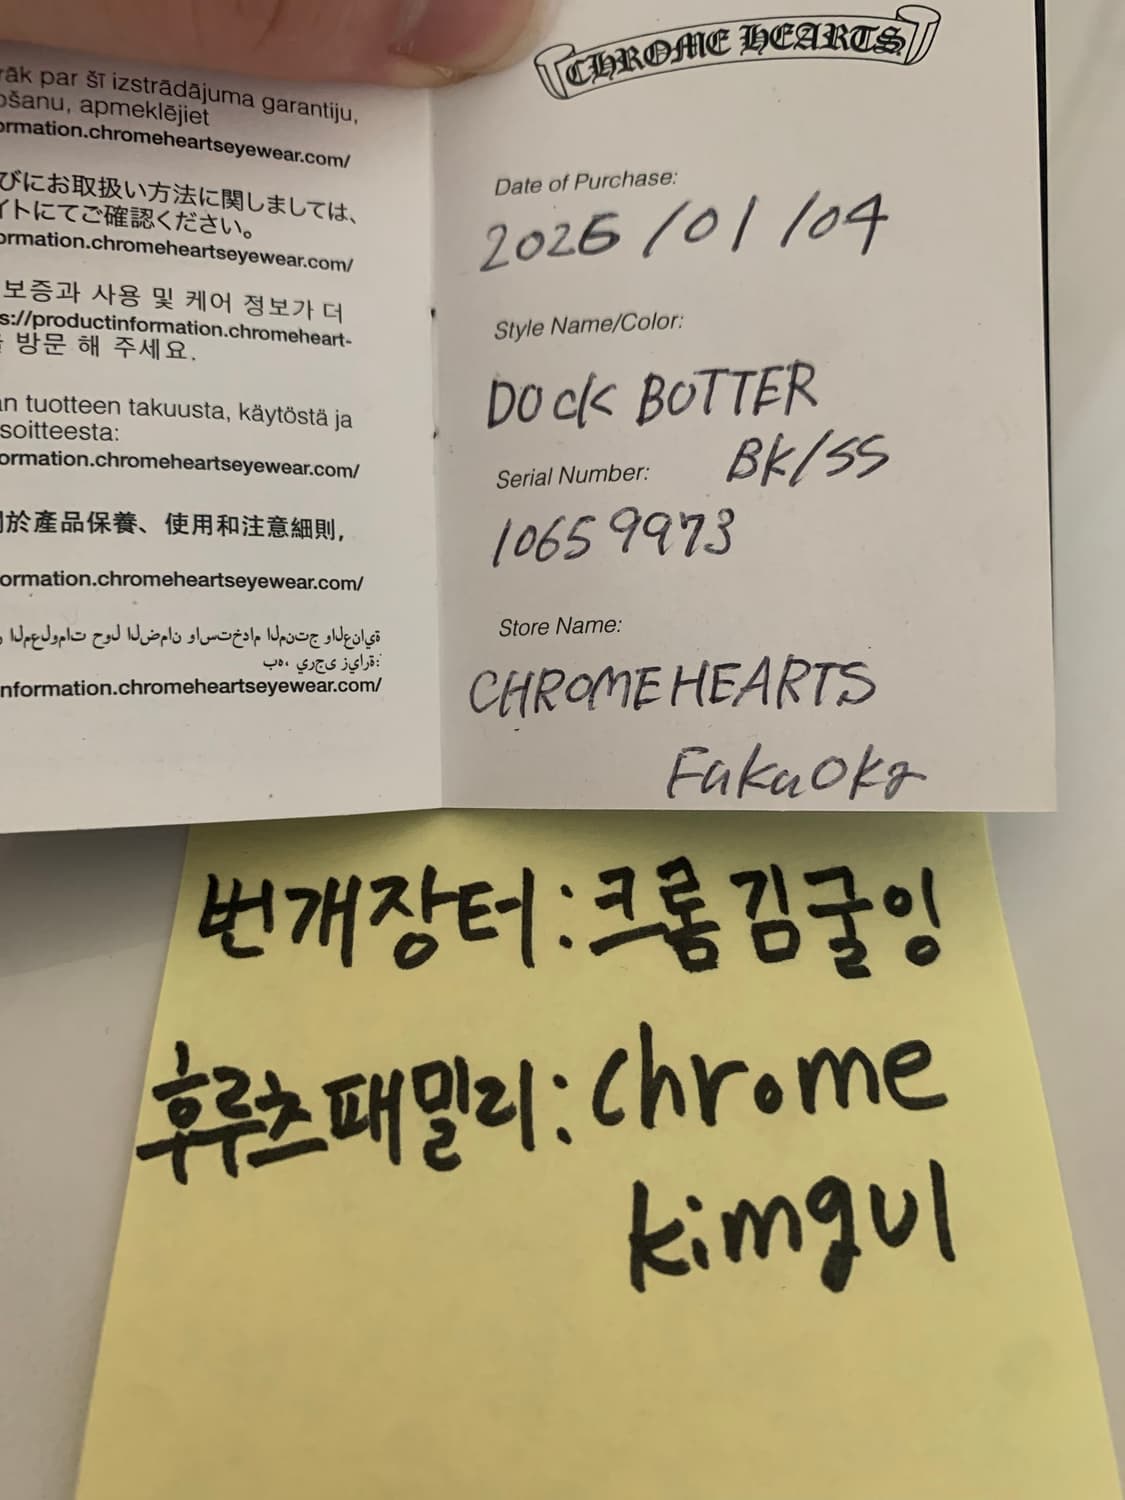 rāk par šī izstrādājuma garantiju,
ošanu, apmeklējiet
ormation.chromeheartseyewear.com/
びにお取扱い方法に関しましては、
イトにてご確認ください。
ormation.chromeheartseyewear.com/
보증과 사용 및 케어 정보가 더
s://productinformation.chromeheart-
방문 해 주세요.
an tuotteen takuusta, käytöstä ja
soitteesta:
ormation.chromeheartseyewear.com/
於產品保養、使用和注意細則,
ormation.chromeheartseyewear.com/
المعلومات حول الضمان واستخدام المنتج والعناية
به، يرجى زيارة:
nformation.chromeheartseyewear.com/
CHROME HEARTS
Date of Purchase:
2026/01/04
Style Name/Color:
DOCK BOTTER
BK/SS
Serial Number:
10659973
Store Name:
CHROMEHEARTS
FukuOka
번개장터:크롬김굴잉
후루츠패밀리:chrome
kimgul